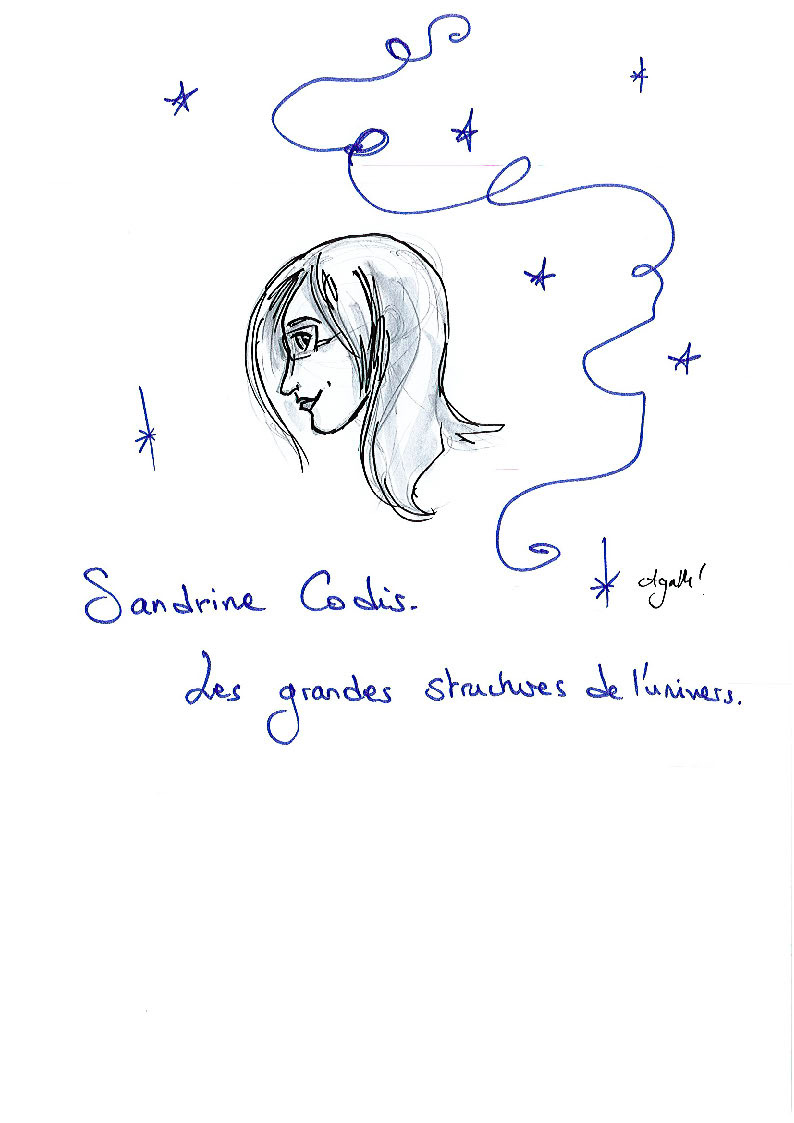 Sandrine Codis.
Les grandes structures de l'univers.